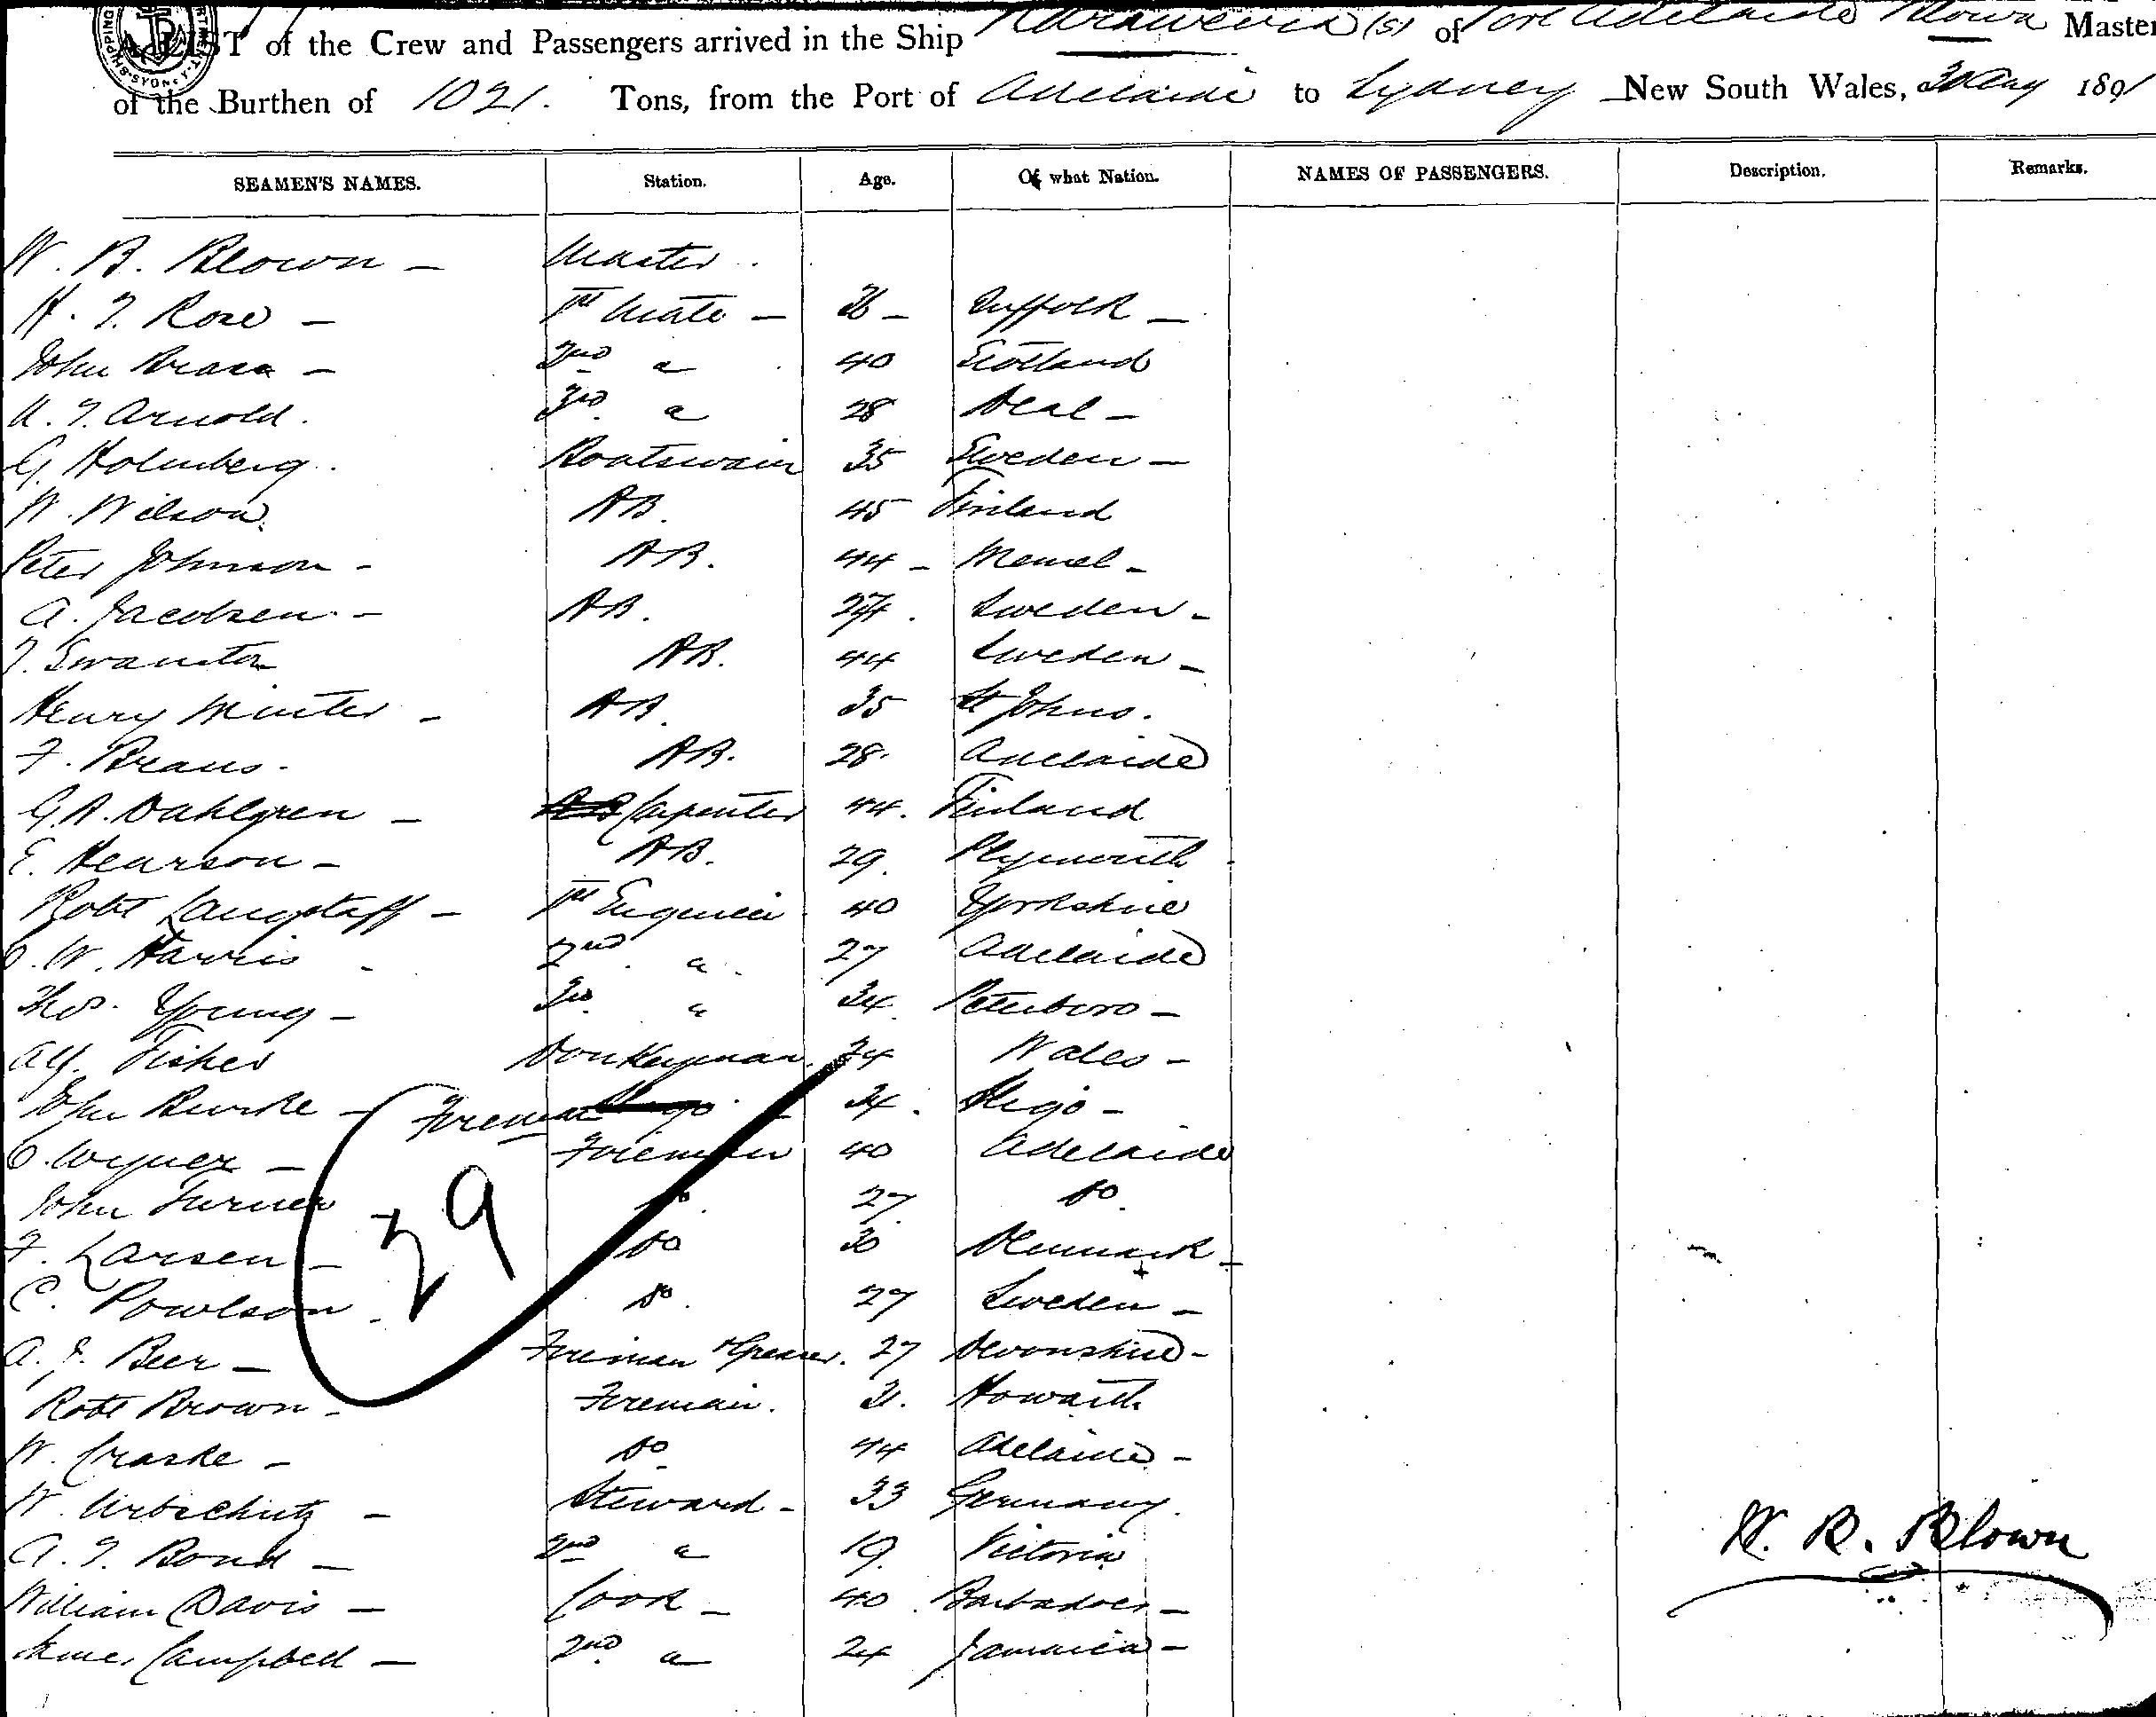 A LIST of the Crew and Passengers arrived in the Ship (s) of Port Adelaide Blown Master
of the Burthen of 1021. Tons, from the Port of Adelaide to Sydney New South Wales, Aug 1891
SEAMEN'S NAMES. Station. Age. Of what Nation. NAMES OF PASSENGERS. Description. Remarks.
W. B. Blown - Master
H. T. Rose - 1st Mate - 36 - Suffolk -
John - 2nd " 40 Scotland
A. T. Arnold. 3rd " 28 Deal -
G. Holmberg. Boatswain 35 Sweden -
W. Wilson. AB. 45 Finland
Peter Johnson - AB. 44 - Memel -
A. Jacobsen - AB. Sweden -
AB. 44 Sweden -
Henry Minter - AB. 35 St Johns.
F. AB. 28. Adelaide
G. A. Dahlgren - Carpenter 44. Finland
E. Hearson - AB. 29. Plymouth
Robt Langstaff - 1st Engineer 40 Yorkshire
W. Harris - 2nd " 27 Adelaide
Thos. Young - 3rd " 34. Peterboro -
Alf. Fisher Donkeyman. 34 Wales -
John Burke - Fireman 34. Sligo -
Fireman 40 Adelaide
John Turner Do. 27. Do.
F. Larsen - Do 30 Denmark
C. Powlson - Do. 27 Sweden -
A. J. Beer - Fireman & Greaser. 27 Devonshire -
Robt Brown - Fireman. 31. Howarth
W. Craske - Do. 44 Adelaide -
W. Urbschutz - Steward - 33 Germany.
A. T. Bond - 2nd " 19. Victoria
William Davis - Cook - 40. Barbadoes -
James Campbell - 2nd " 24 Jamaica -
29
W. B. Blown